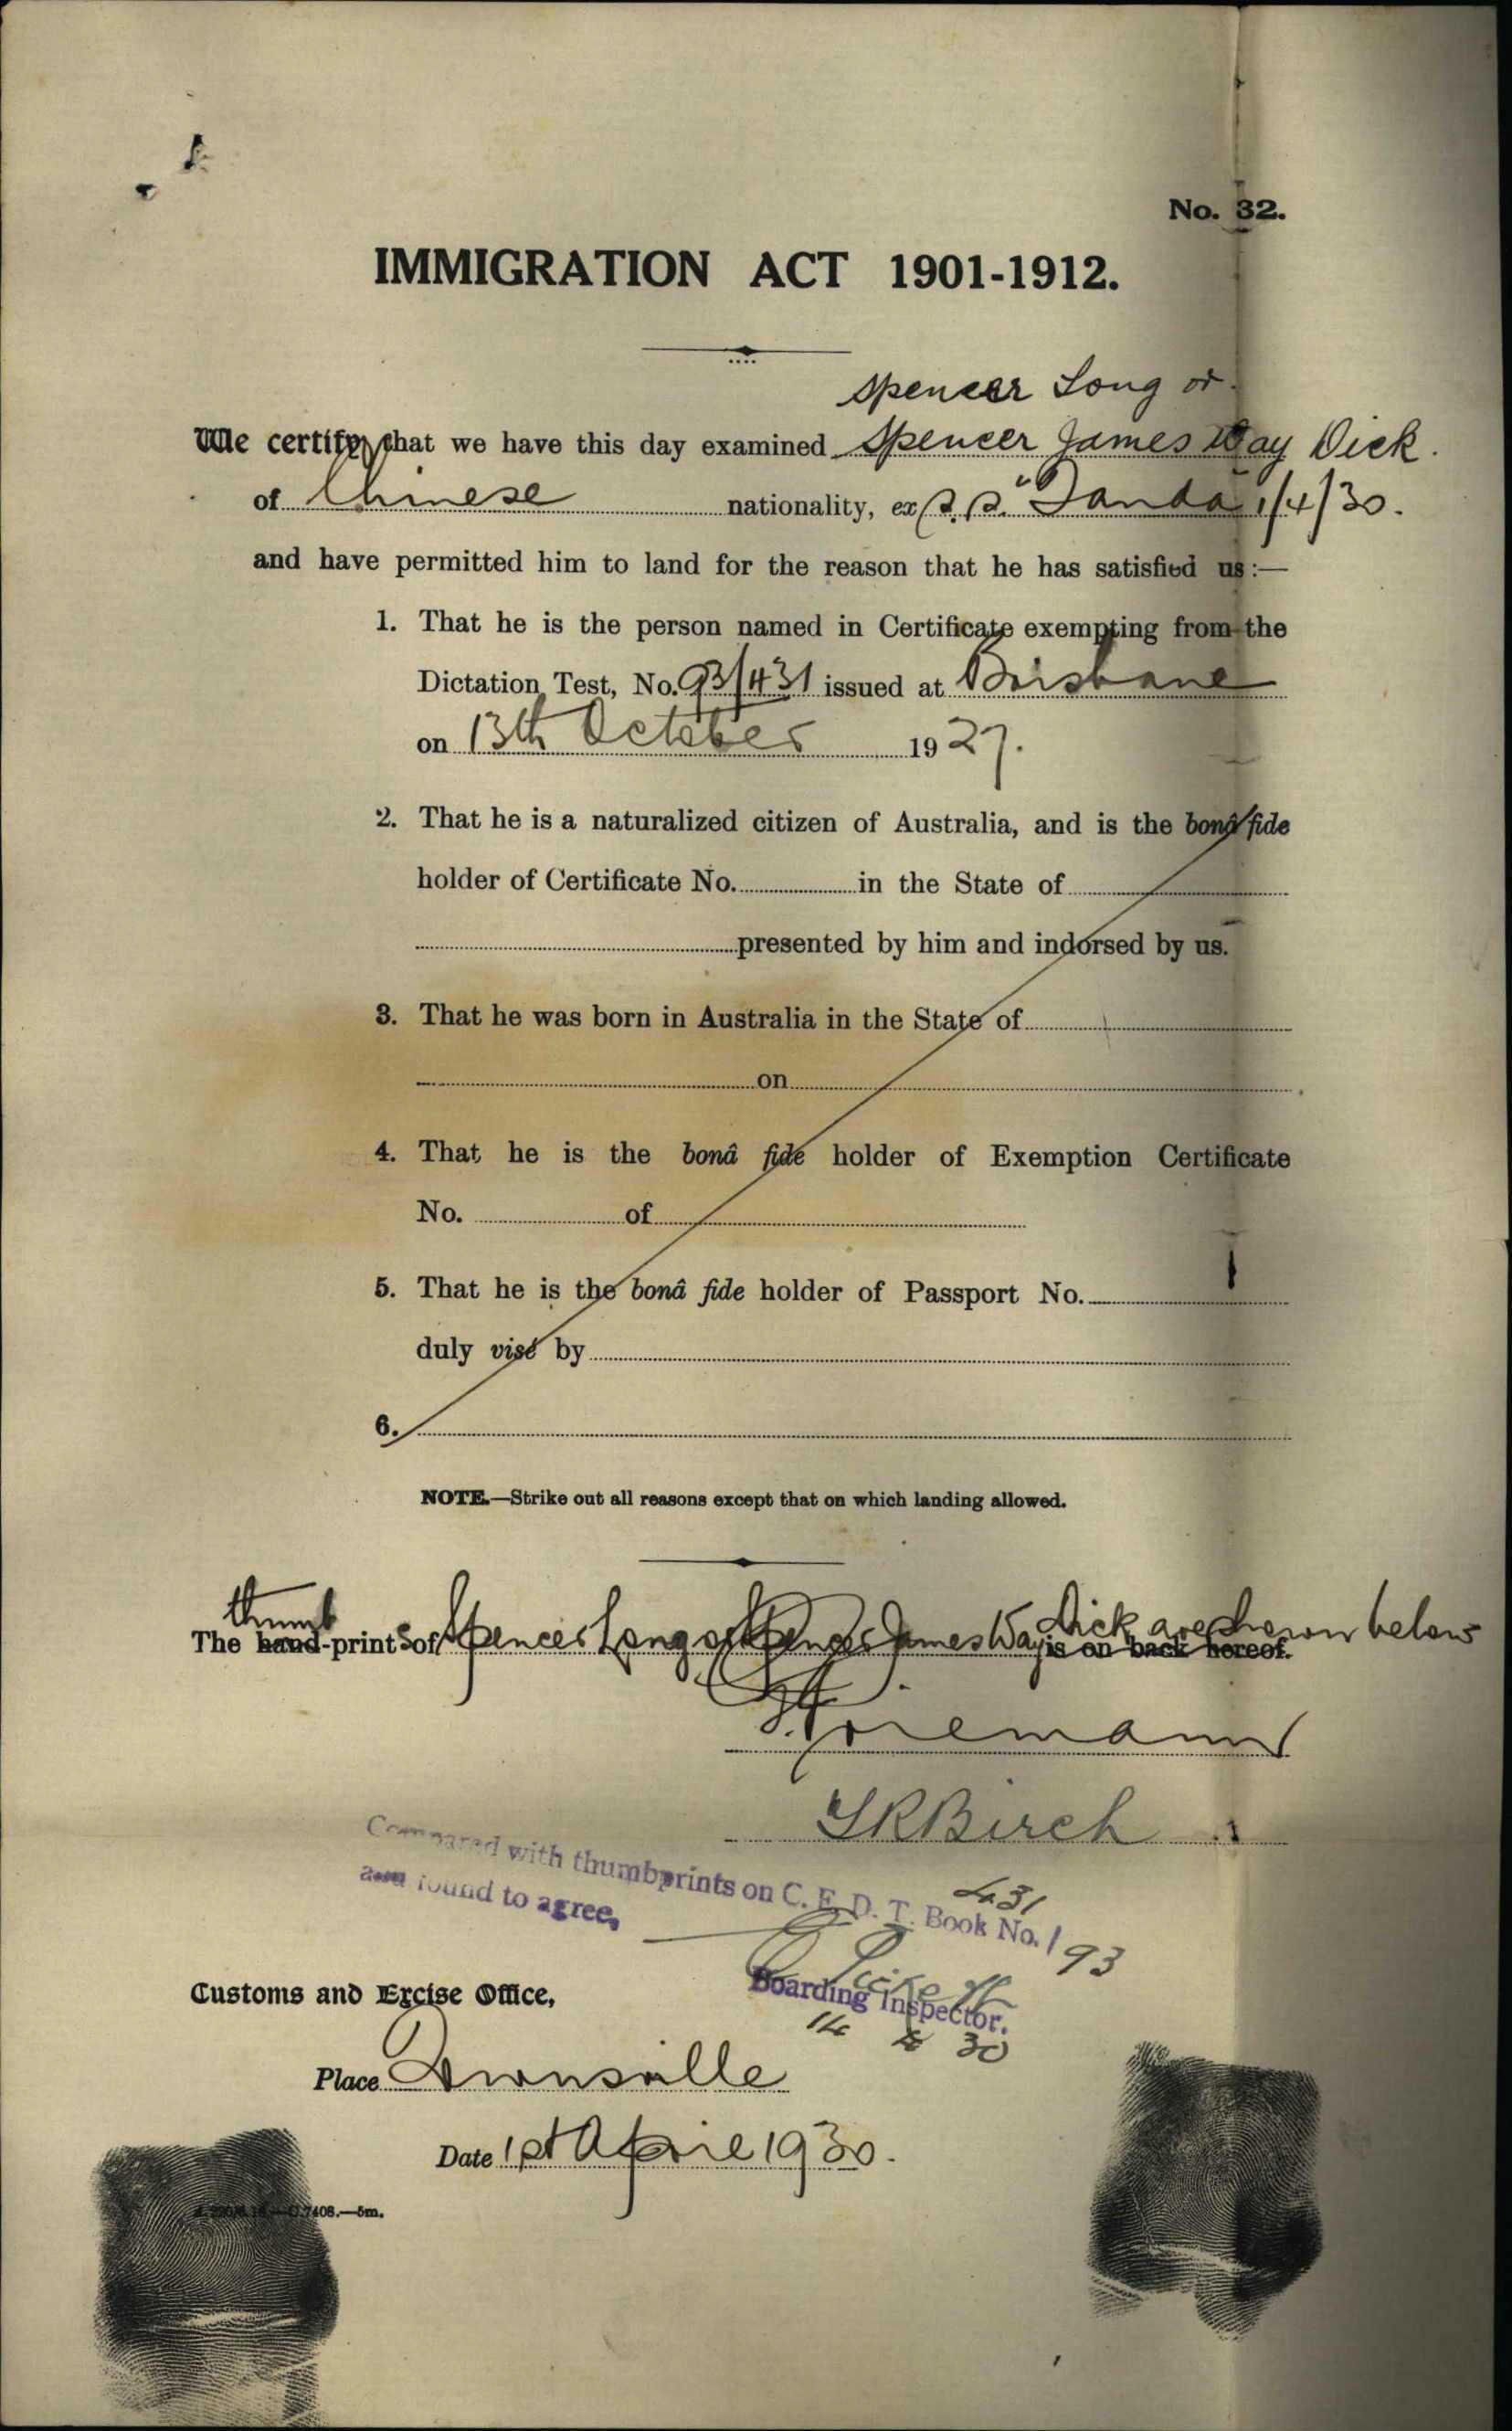 No. 32.
IMMIGRATION ACT 1901-1912.
Spencer Long or
We certify that we have this day examined Spencer James Way Dick.
of Chinese nationality, ex S.S. "Tanda" 1/4/30.
and have permitted him to land for the reason that he has satisfied us:—
1. That he is the person named in Certificate exempting from the
Dictation Test, No. 93/431 issued at Brisbane
on 13th October 1927.
2. That he is a naturalized citizen of Australia, and is the bonâ fide
holder of Certificate No. in the State of
presented by him and indorsed by us.
3. That he was born in Australia in the State of
on
4. That he is the bonâ fide holder of Exemption Certificate
No. of
5. That he is the bonâ fide holder of Passport No.
duly visé by
6.
NOTE.—Strike out all reasons except that on which landing allowed.
thumb Dick are shown below
The hand-prints of Spencer Long or Spencer James Way is on back hereof.
Foremann
Birch
Compared with thumbprints on C. E. D. T. Book No. 431/93
and found to agree,
Boarding Inspector.
14 4 30
Customs and Excise Office,
Place Townsville
Date 1st April 1930.
C.7408.—5m.